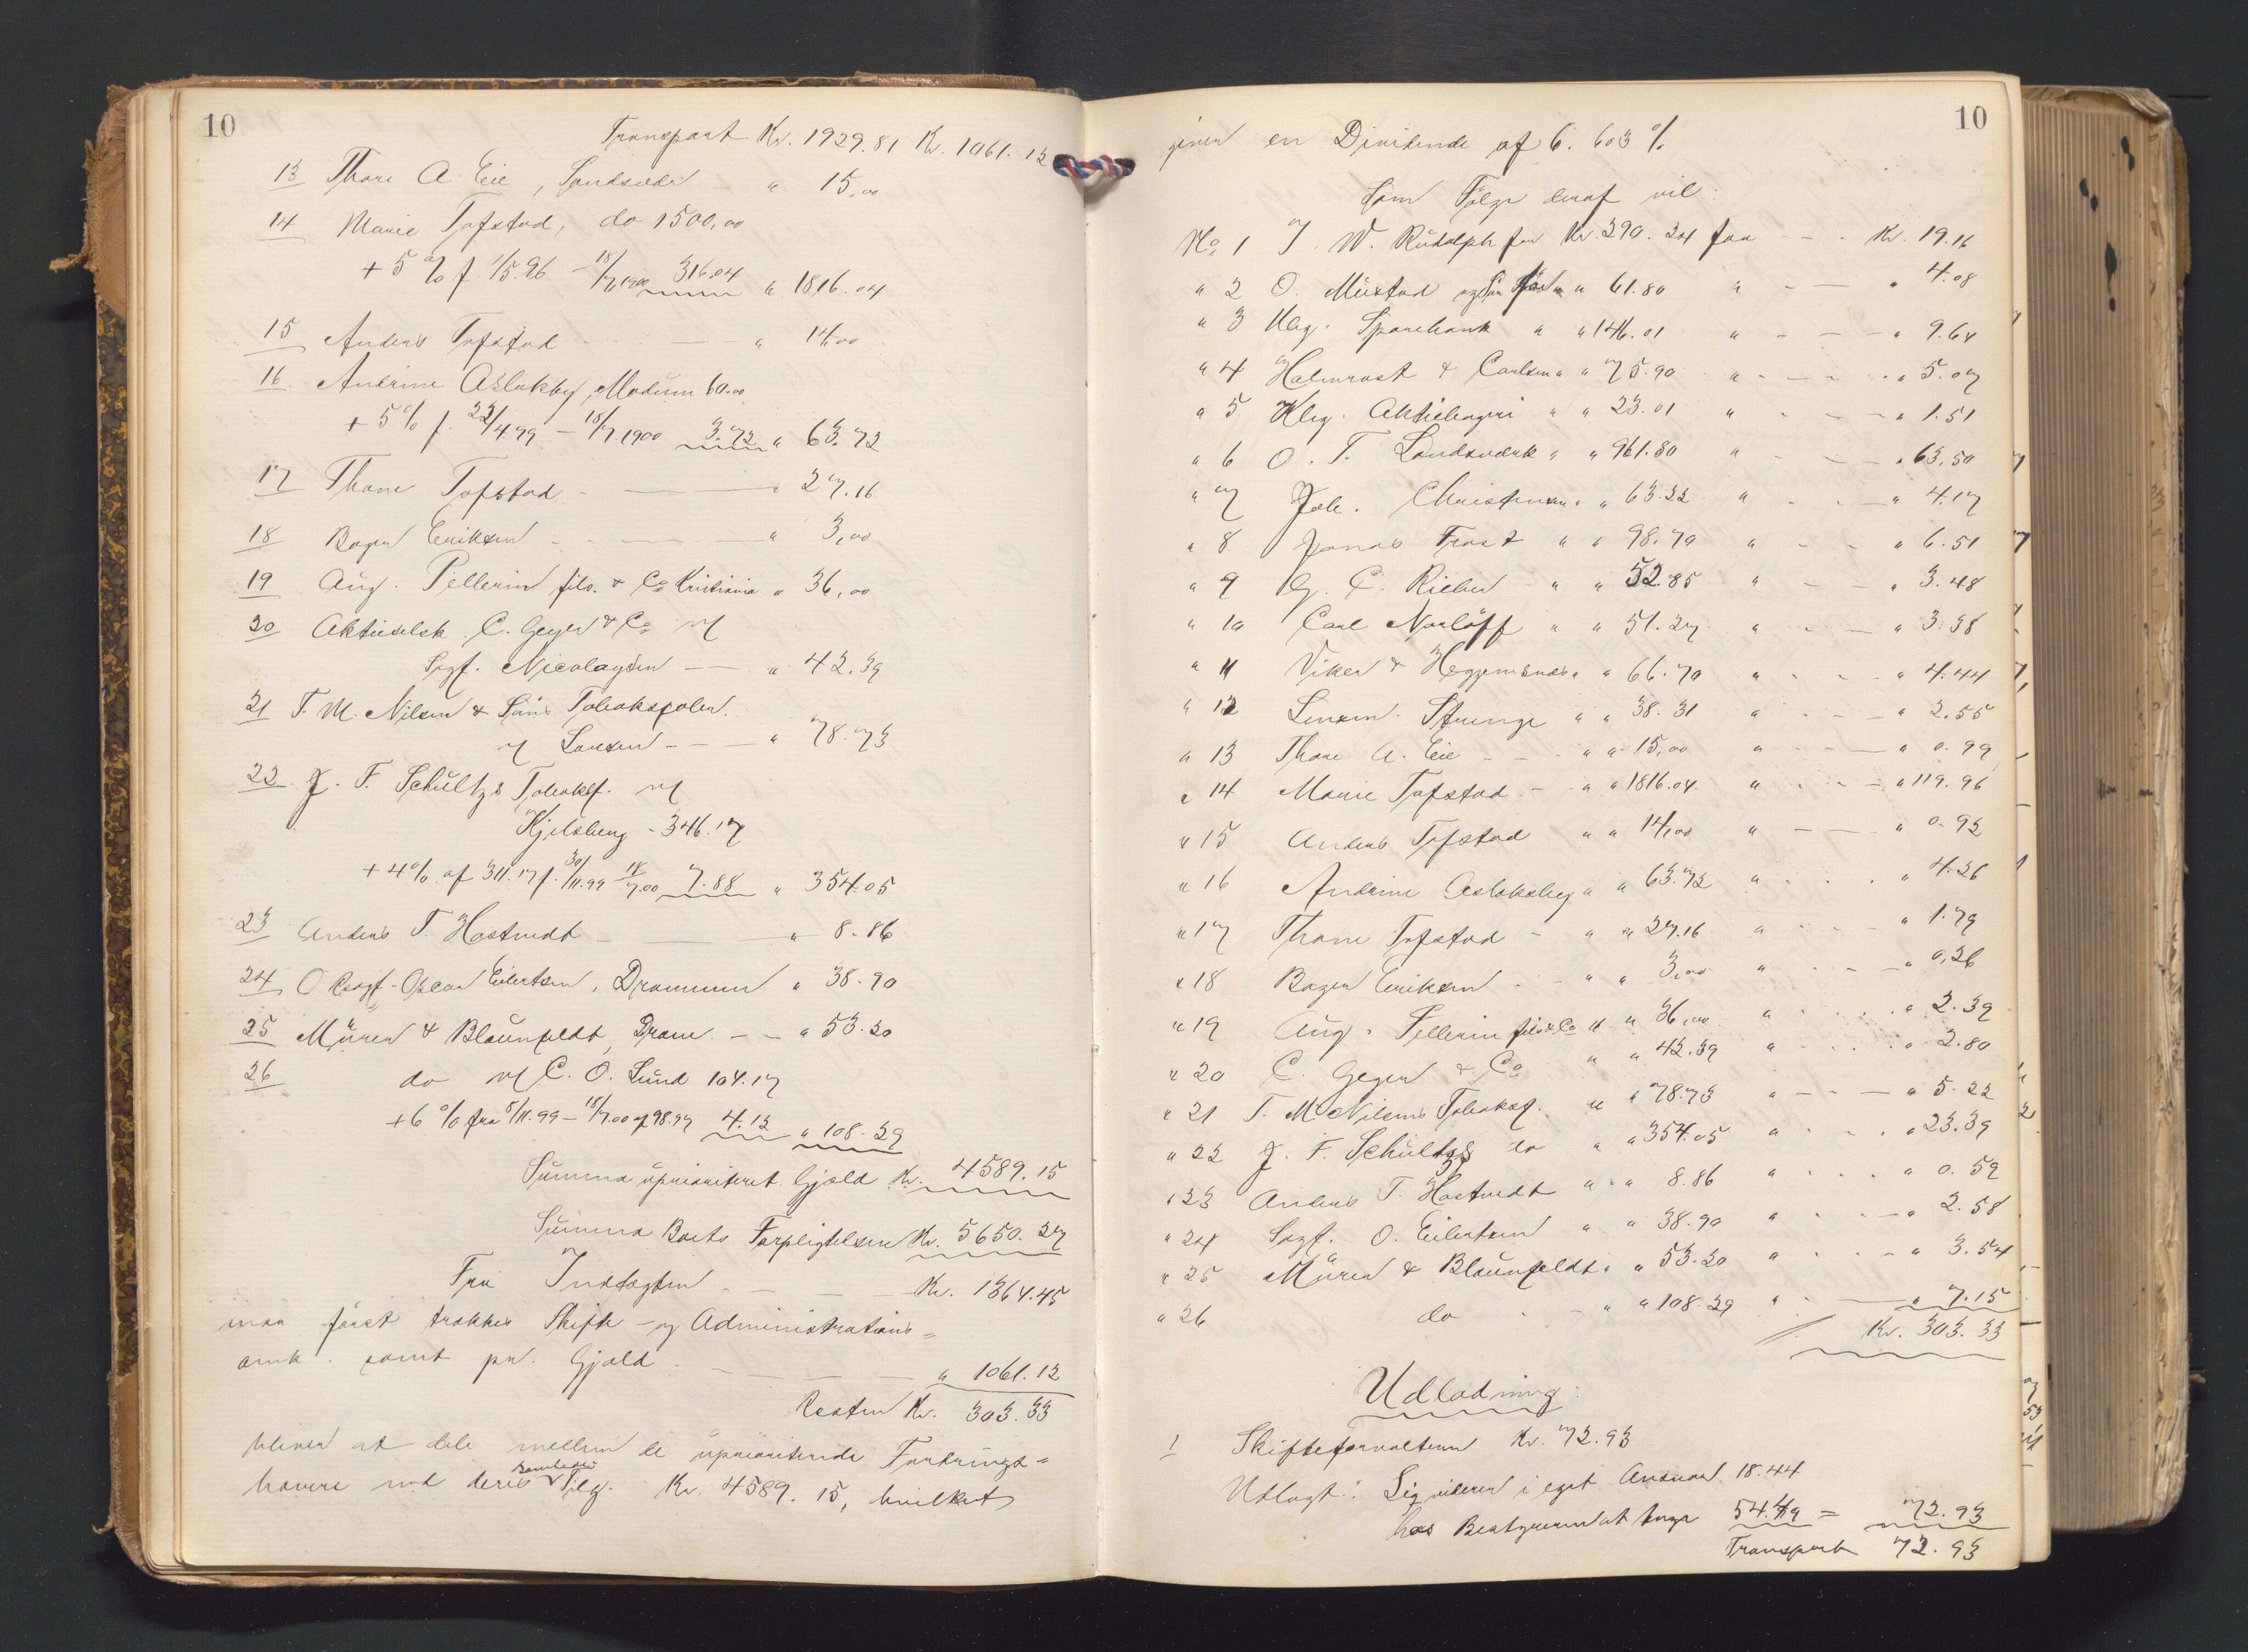 10
Transport Kr. 1929.81 Kr. 1061.12
13 Thore A. Eie, Sandsvær - " 15,00
14 Marie Tofstad, do 1500,00
+ 5 % f. 1/5.96 - 18/7 1900 316.04 " 1816.04
15 Anders Tofstad - - " 14,00
16 Andrine Aslaksby, Modum 60.00
+ 5 % f. 22/4.99 - 18/7.1900 3.72 " 63.72
17 Thore Tofstad - - " 27.16
18 Eriksen - - " 3,00
19 Aug. Pellerin fils. & Co Kristiania " 36,00
20 Aktieselsk. C. Geyer & Co v/
Sagf. Nicolaysen - - " 42.39
21 T. M. Nilsen & Søns Tobaksfabr.
v/ Larsen - - - " 78.73
22 J. F. Schultzs Tobaksf. v/
Kjelsberg - 346.17
+ 4 % af 311.17 f. 30/11.99 - 18/7.00 7.88 " 354.05
23 Anders T. Hostvedt - - " 8.86
24 O.Rsagf. Oscar Eilertsen, Drammen " 38.90
25 Müren & Blaunfeldt, Dram. - - " 53.20
26 do v/ C. O. Lund 104.17
+ 6 % fra 5/11.99 - 18/7.00 af 98.97 4.12 " 108.29
Summa uprioriteret Gjæld Kr. 4589.15
Summa Boets Forpligtelser Kr. 5650.27
Fra Indtægten - - - Kr. 1364.45
maa først trækkes Skifte- og Administrations=
omk. samt pr. Gjæld - - - " 1061.12
Resten Kr. 303.33
bliver at dele mellem de upriori­terede Fordrings=
havere med deres samlede Tilg. Kr. 4589.15, hvilket
10
giver en Dividende af 6.603 %
Som Følge deraf vil:
No 1 J. W. Rudolph for Kr. 290.24 faa - - Kr. 19.16
" 2 O. Mustad og Søn " 61.80 " - - " 4.08
" 3 Kbg. Sparebank " " 146.01 " - - " 9.64
" 4 Halmrast & Carlsen " " 75.90 " - - " 5.07
" 5 Kbg. Aktiebryggeri " " 23.01 " - - " 1.51
" 6 O. T. Landsværk " " 961.80 " - - " 63.50
" 7 Joh. Christensen " " 63.22 " - - " 4.17
" 8 Jonas Frost " " 98.70 " - - " 6.51
" 9 G. C. Rieber " " 52.85 " - - " 3.48
" 10 Carl Norløff " " 51.27 " - - " 3.38
" 11 Viker & Heggenes " " 66.70 " - - " 4.44
" 12 Strunge " " 38.31 " - - " 2.55
" 13 Thore A. Eie - - " " 15,00 " - - " 0.99
" 14 Marie Tofstad - " " 1816.04 " - - " 119.96
" 15 Anders Tofstad " " 14,00 " - - " 0.92
" 16 Andrine Aslaksby " " 63.72 " - - " 4.26
" 17 Thore Tofstad - " " 27.16 " - - " 1.79
" 18 Eriksen - " " 3,00 " - - " 0,26
" 19 Aug. Pellerin fils & Co " " 36,00 " - - " 2.39
" 20 C. Geyer & Co " " 42.39 " - - " 2.80
" 21 T. M. Nilsens Tobaksf. " " 78.73 " - - " 5.22
" 22 J. F. Schultzs do " " 354.05 " - - " 23.39
" 23 Anders T. Hostvedt " " 8.86 " - - " 0.59
" 24 Sagf. O. Eilertsen " " 38.90 " - - " 2.58
" 25 Müren & Blaunfeldt " " 53.20 " - - " 3.54
" 26 do - - " " 108.29 " - - " 7.15
Kr. 303.33
Udlodning:
1 Skifteforvalteren Kr. 72.93
Udlagt: Ligvideren i eget Ansvar 18.44
hos Bestyreren at tage 54.49 = 72.93
Transport 72.93